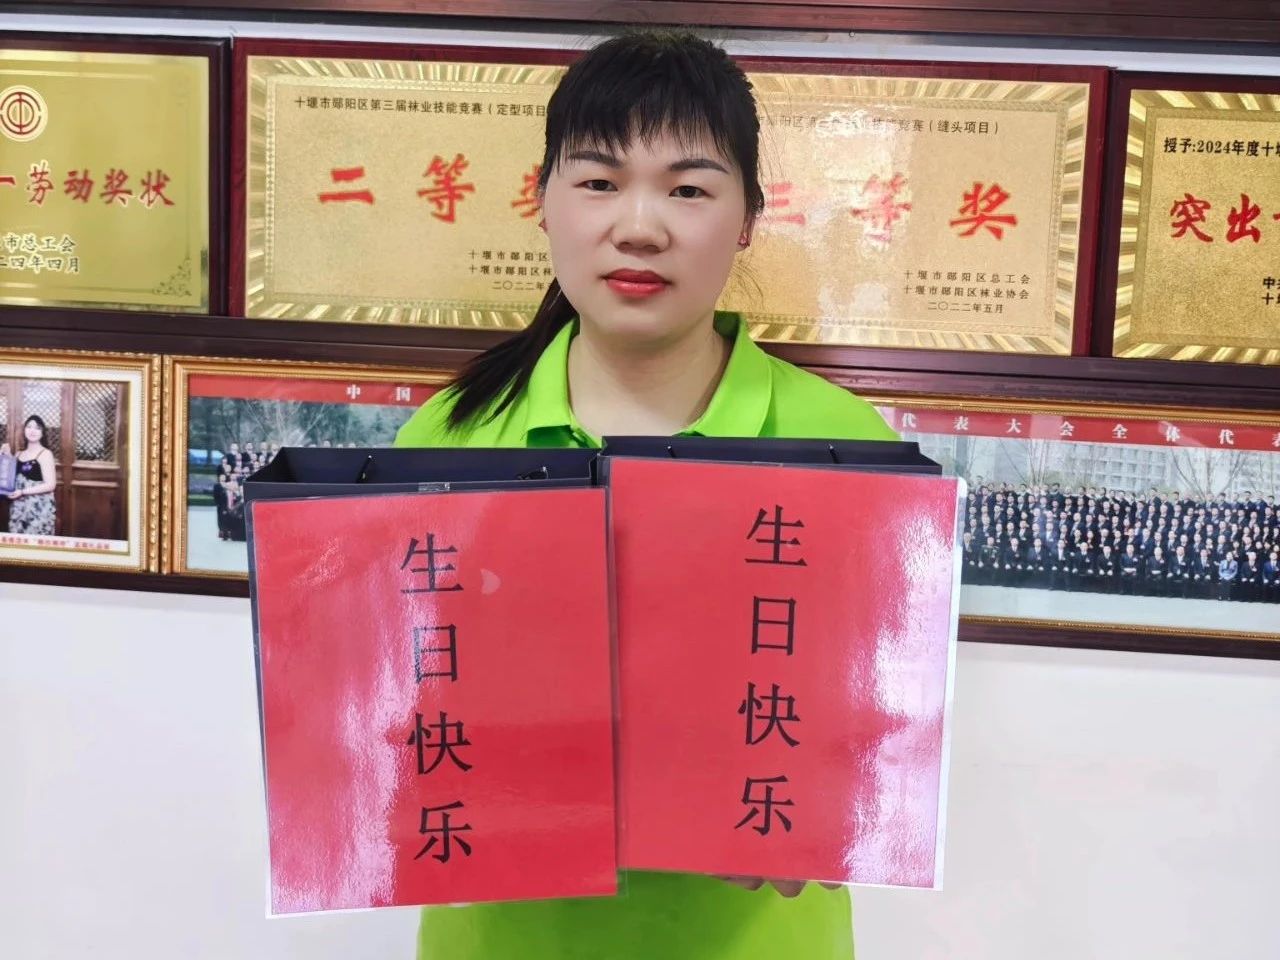 劳动奖状
市总工会
二四年四月
十堰市郧阳区第三届袜业技能竞赛（定型项目
二等
十堰市郧阳区
十堰市郧阳区袜
二〇二二年
技能竞赛（缝头项目）
三等奖
十堰市郧阳区总工会
十堰市郧阳区袜业协会
二〇二二年五月
授予:2024年度十堰
突出
中国
代表大会全体代表
生日快乐
生日快乐